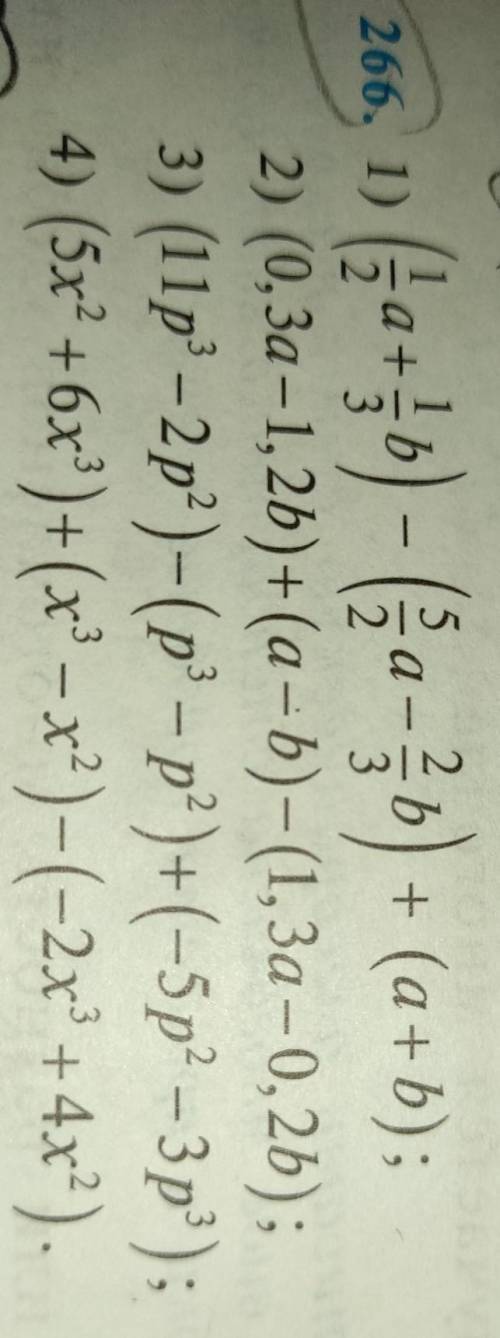 266. 1) (1/2 a + 1/3 b) − (5/2 a − 2/3 b) + (a + b);
2) (0,3a − 1,2b) + (a − b) − (1,3a − 0,2b);
3) (11p³ − 2p²) − (p³ − p²) + (−5p² − 3p³);
4) (5x² + 6x³) + (x³ − x²) − (−2x³ + 4x²).